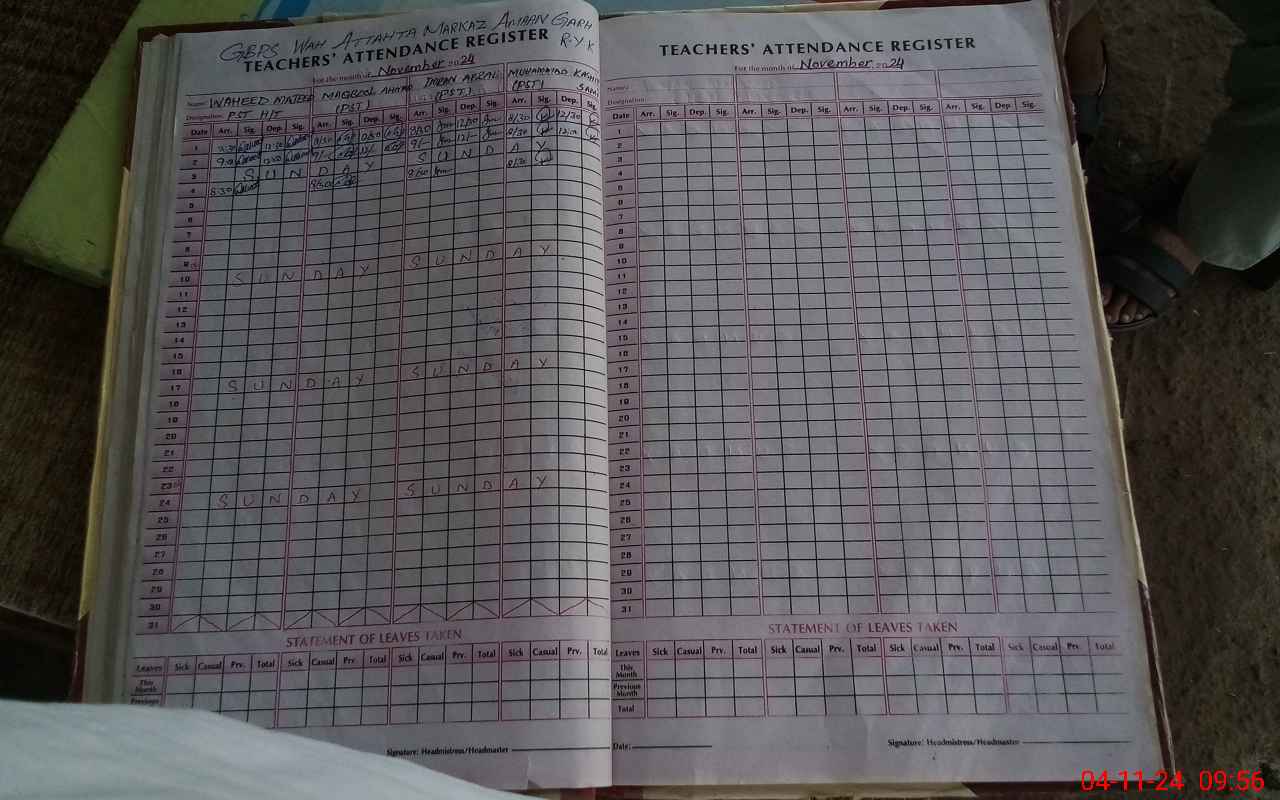 GBPS WAH ATTAHTA MARKAZ AMAAN GARH
R.Y.K
TEACHERS' ATTENDANCE REGISTER
For the month of November 2024
Name: WAHEED MAJEED MAQBOOL AHMAD IMRAN ABZAL MUHAMMAD KASHIF
Designation: PST H/T (PST) (PST) (PST)
Date Arr. Sig. Dep. Sig. Arr. Sig. Dep. Sig. Arr. Sig. Dep. Sig. Arr. Sig. Dep. Sig.
1 8/30 12/30
2
3 SUNDAY SUNDAY
4 8:30 8/30
5
6
7
8
9
10 SUNDAY SUNDAY
11
12
13
14
15
16
17 SUNDAY SUNDAY
18
19
20
21
22
23
24 SUNDAY SUNDAY
25
26
27
28
29
30
31
STATEMENT OF LEAVES TAKEN
Leaves Sick Casual Prv. Total Sick Casual Prv. Total Sick Casual Prv. Total Sick Casual Prv. Total
This Month
Previous
Signature: Headmistress/Headmaster
TEACHERS' ATTENDANCE REGISTER
For the month of November 2024
Name:
Designation:
Date Arr. Sig. Dep. Sig. Arr. Sig. Dep. Sig. Arr. Sig. Dep. Sig. Arr. Sig. Dep. Sig.
1
2
3
4
5
6
7
8
9
10
11
12
13
14
15
16
17
18
19
20
21
22
23
24
25
26
27
28
29
30
31
STATEMENT OF LEAVES TAKEN
Leaves Sick Casual Prv. Total Sick Casual Prv. Total Sick Casual Prv. Total Sick Casual Prv. Total
This Month
Previous Month
Total
Date:
Signature: Headmistress/Headmaster
04-11-24 09:56